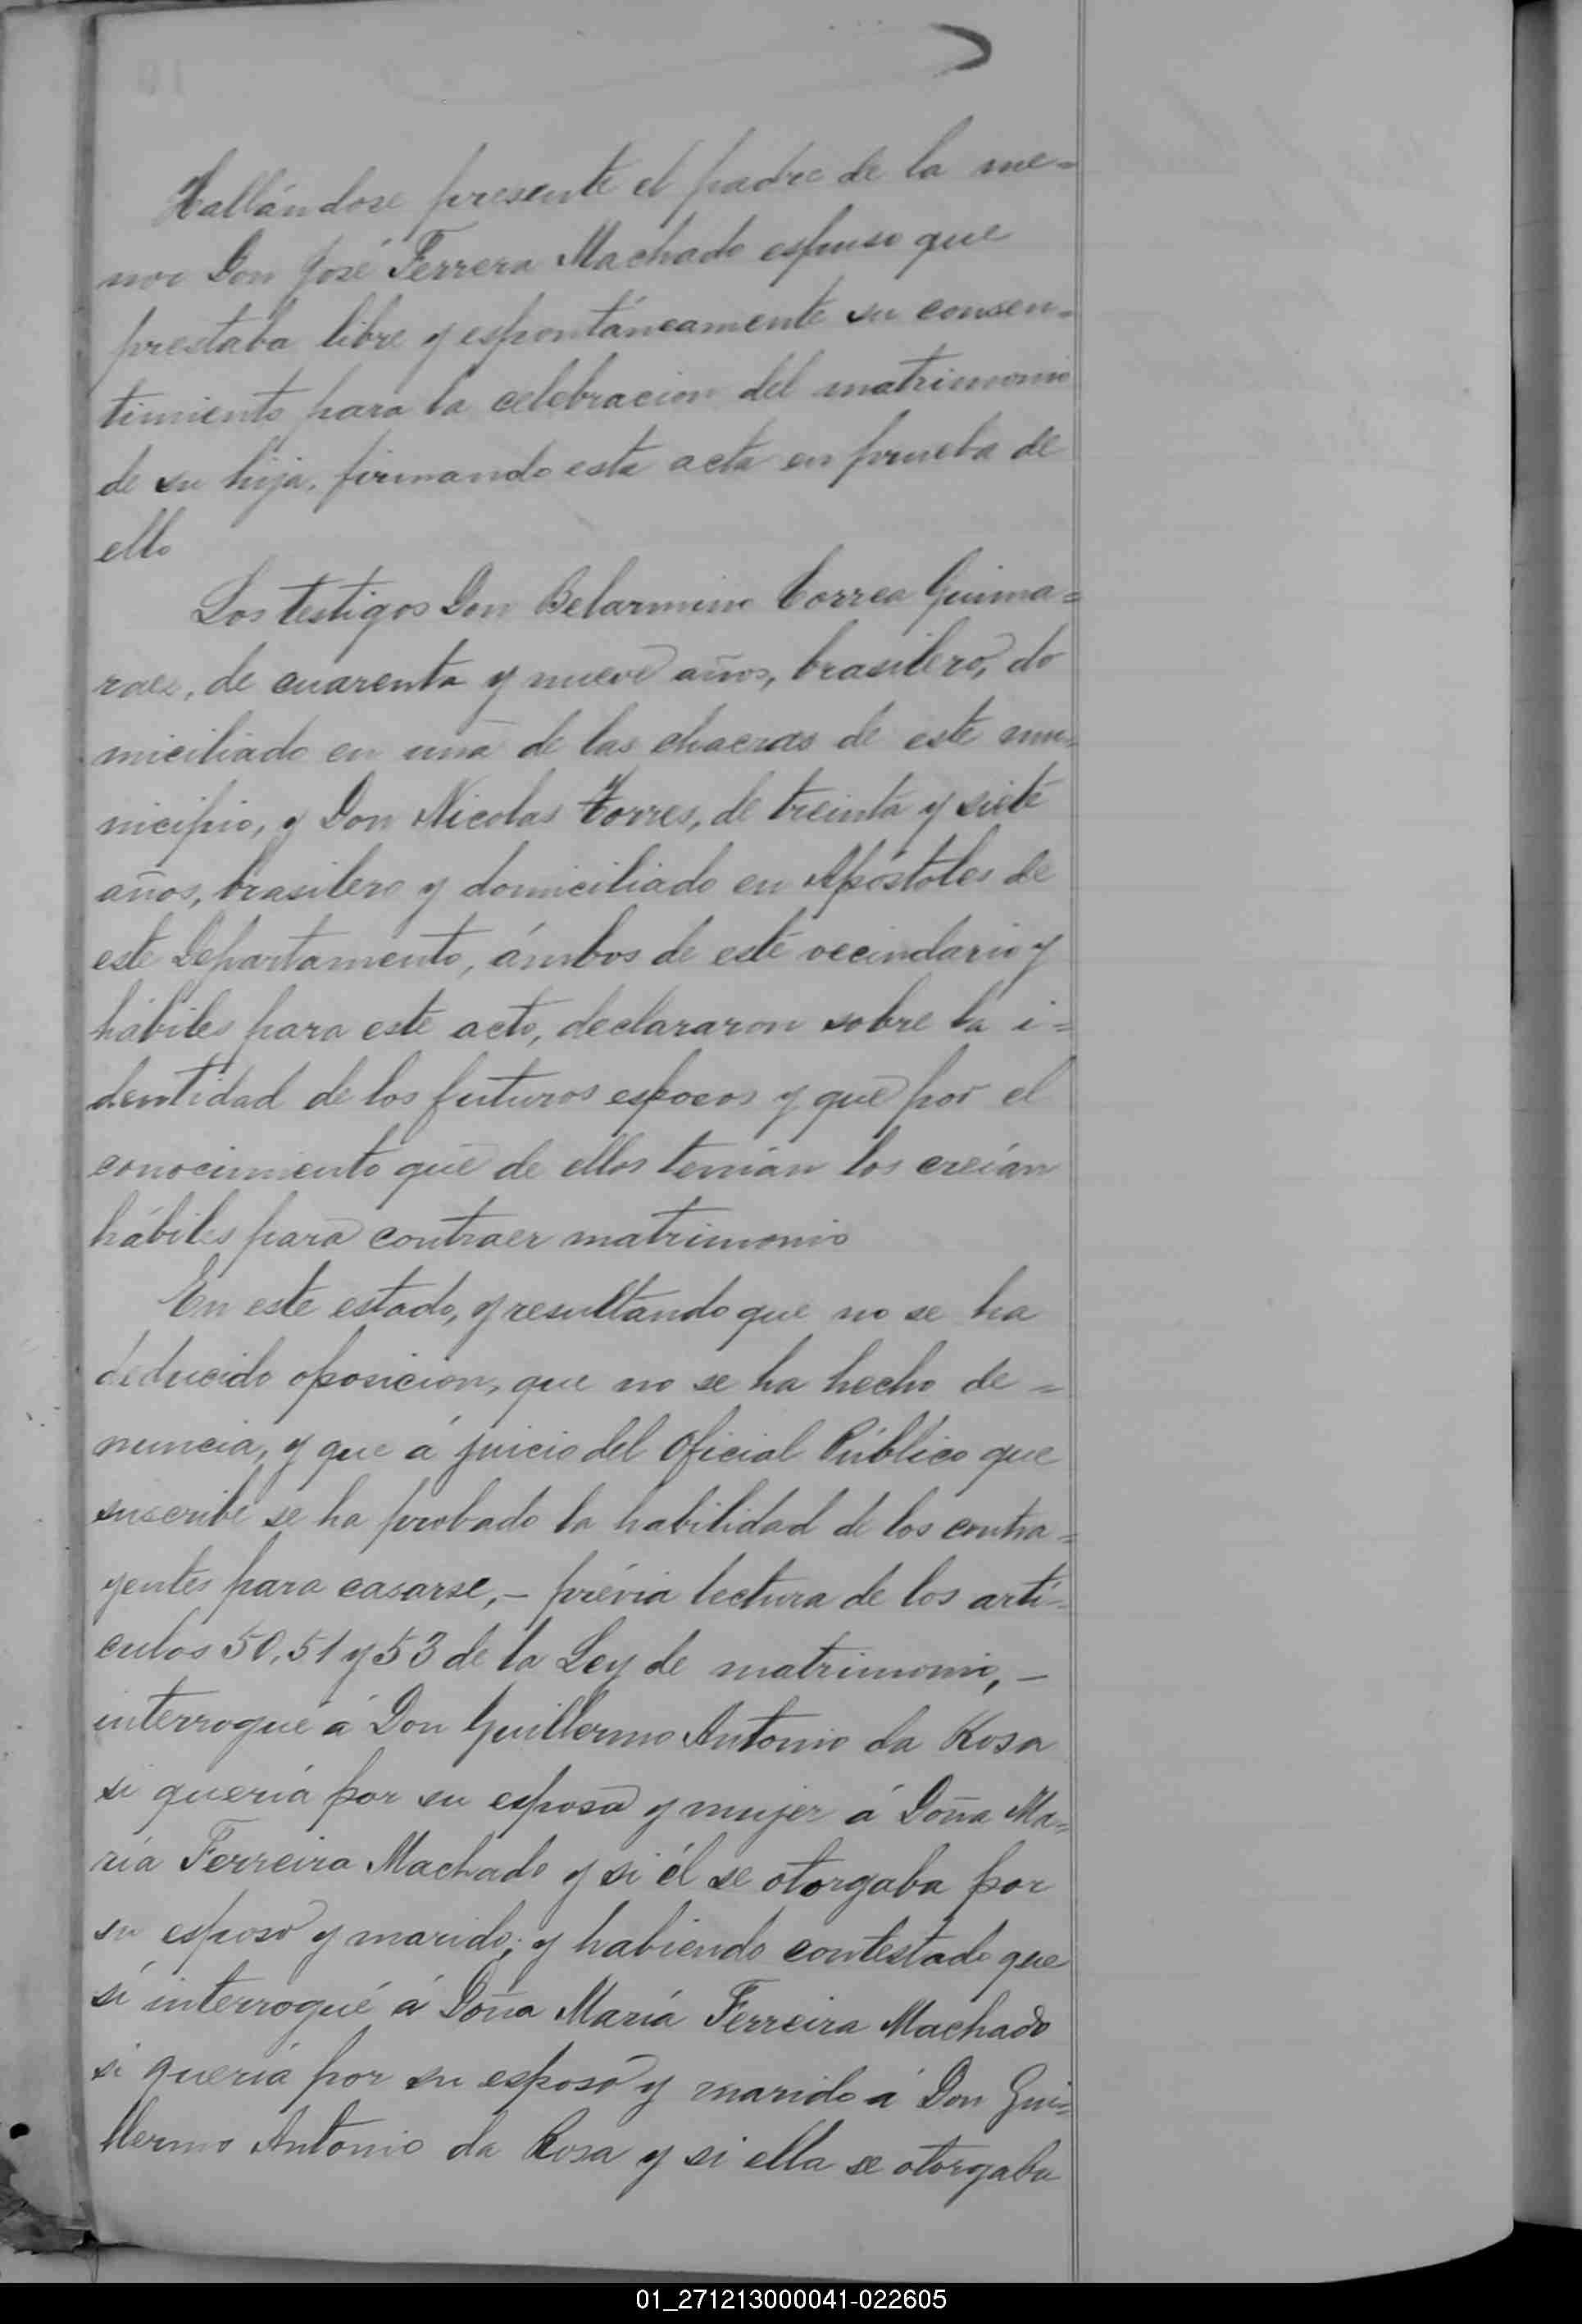 Hallándose presente el padre de la me=
nor Don José Ferrera Machado espuso que
prestaba libre y espontáneamente su consen=
timiento para la celebracion del matrimonio
de su hija, firmando esta acta en prueba de
ello
Los testigos Don Belarmino Correa Guima=
raes, de cuarenta y nueve años, brasilero, do
miciliado en una de las chacras de este mu=
nicipio, y Don Nicolas Torres, de treinta y siete
años, brasilero y domiciliado en Apóstoles de
este Departamento, ámbos de este vecindario y
hábiles para este acto, declararon sobre la i=
dentidad de los futuros esposos y que por el
conocimiento que de ellos tenían los creían
hábiles para contraer matrimonio
En este estado, y resultando que no se ha
deducido oposicion, que no se ha hecho de=
nuncia, y que á juicio del Oficial Público que
suscribe se ha probado la habilidad de los contra=
yentes para casarse, – prévia lectura de los artí=
culos 50, 51 y 53 de la Ley de matrimonio, –
interrogué á Don Guillermo Antonio da Rosa
si quería por su esposa y mujer á Doña Ma=
ría Ferreira Machado y si él se otorgaba por
su esposo y marido; y habiendo contestado que
sí interrogué á Doña María Ferreira Machado
si quería por su esposo y marido á Don Gui=
llermo Antonio da Rosa y si ella se otorgaba
01_271213000041-022605